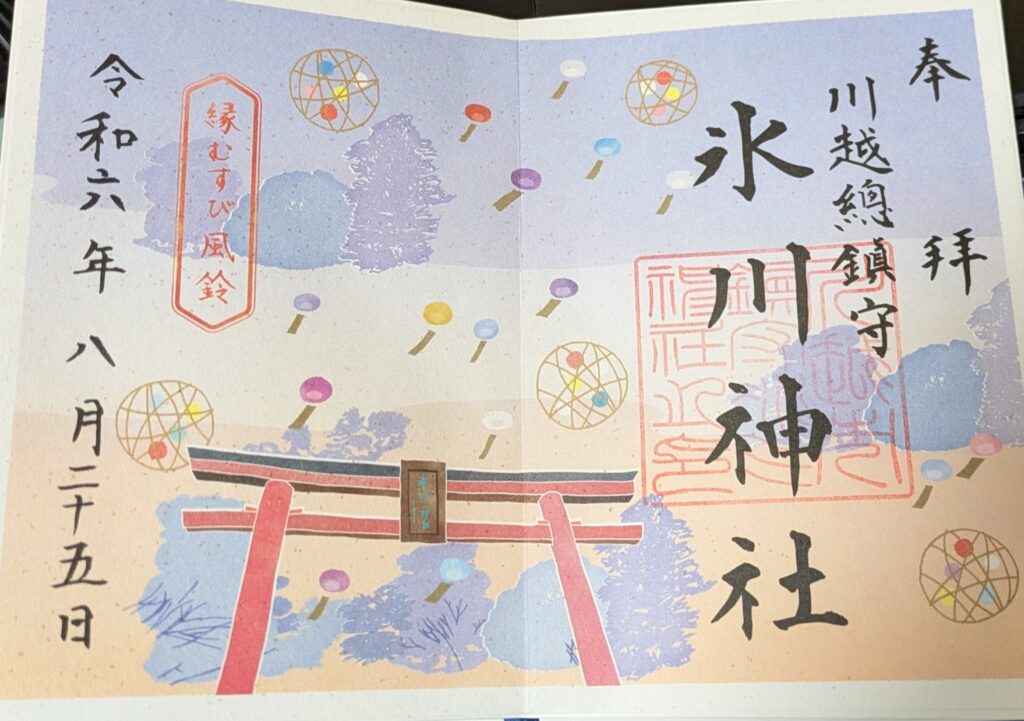 奉拝
川越總鎮守
氷川神社
縁むすび風鈴
令和六年八月二十五日